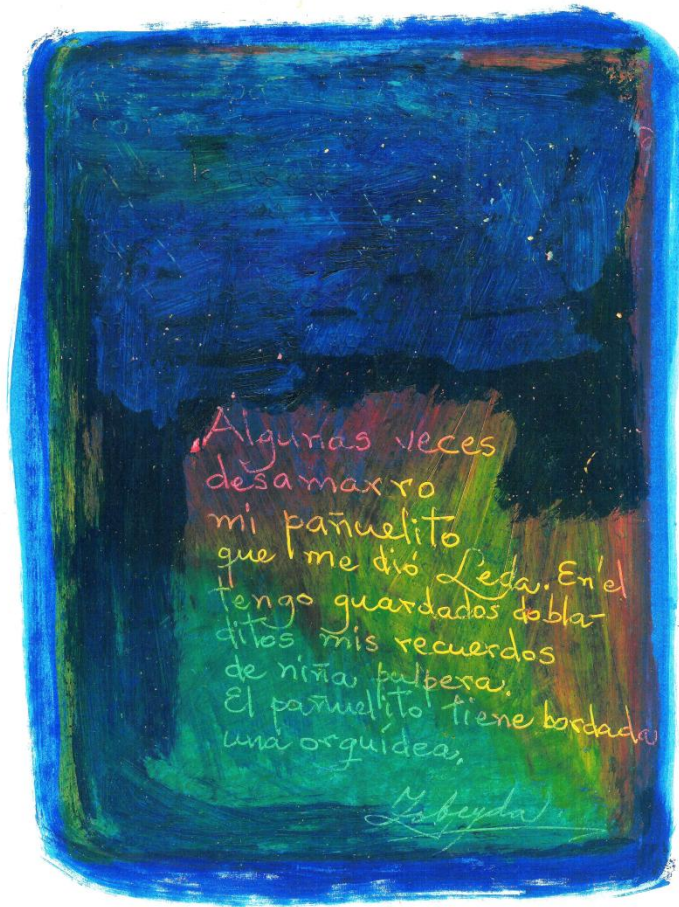 Algunas veces
desamarro
mi pañuelito
que me dió Leda. En él
tengo guardados dobla-
ditos mis recuerdos
de niña pulpera.
El pañuelito tiene bordada
una orquídea.
Zobeyda